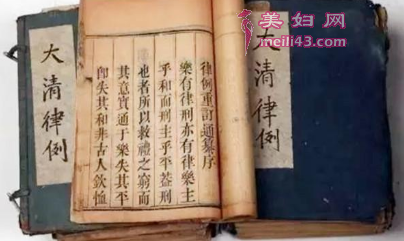 大清律例
律例重訂通纂序
樂有律刑亦有律樂主
乎和而刑主乎平蓋刑
也者所以救禮之窮而
其意實通于樂失其平
卽失其和非古人欽恤
大清律例
美妇网
meili43.com